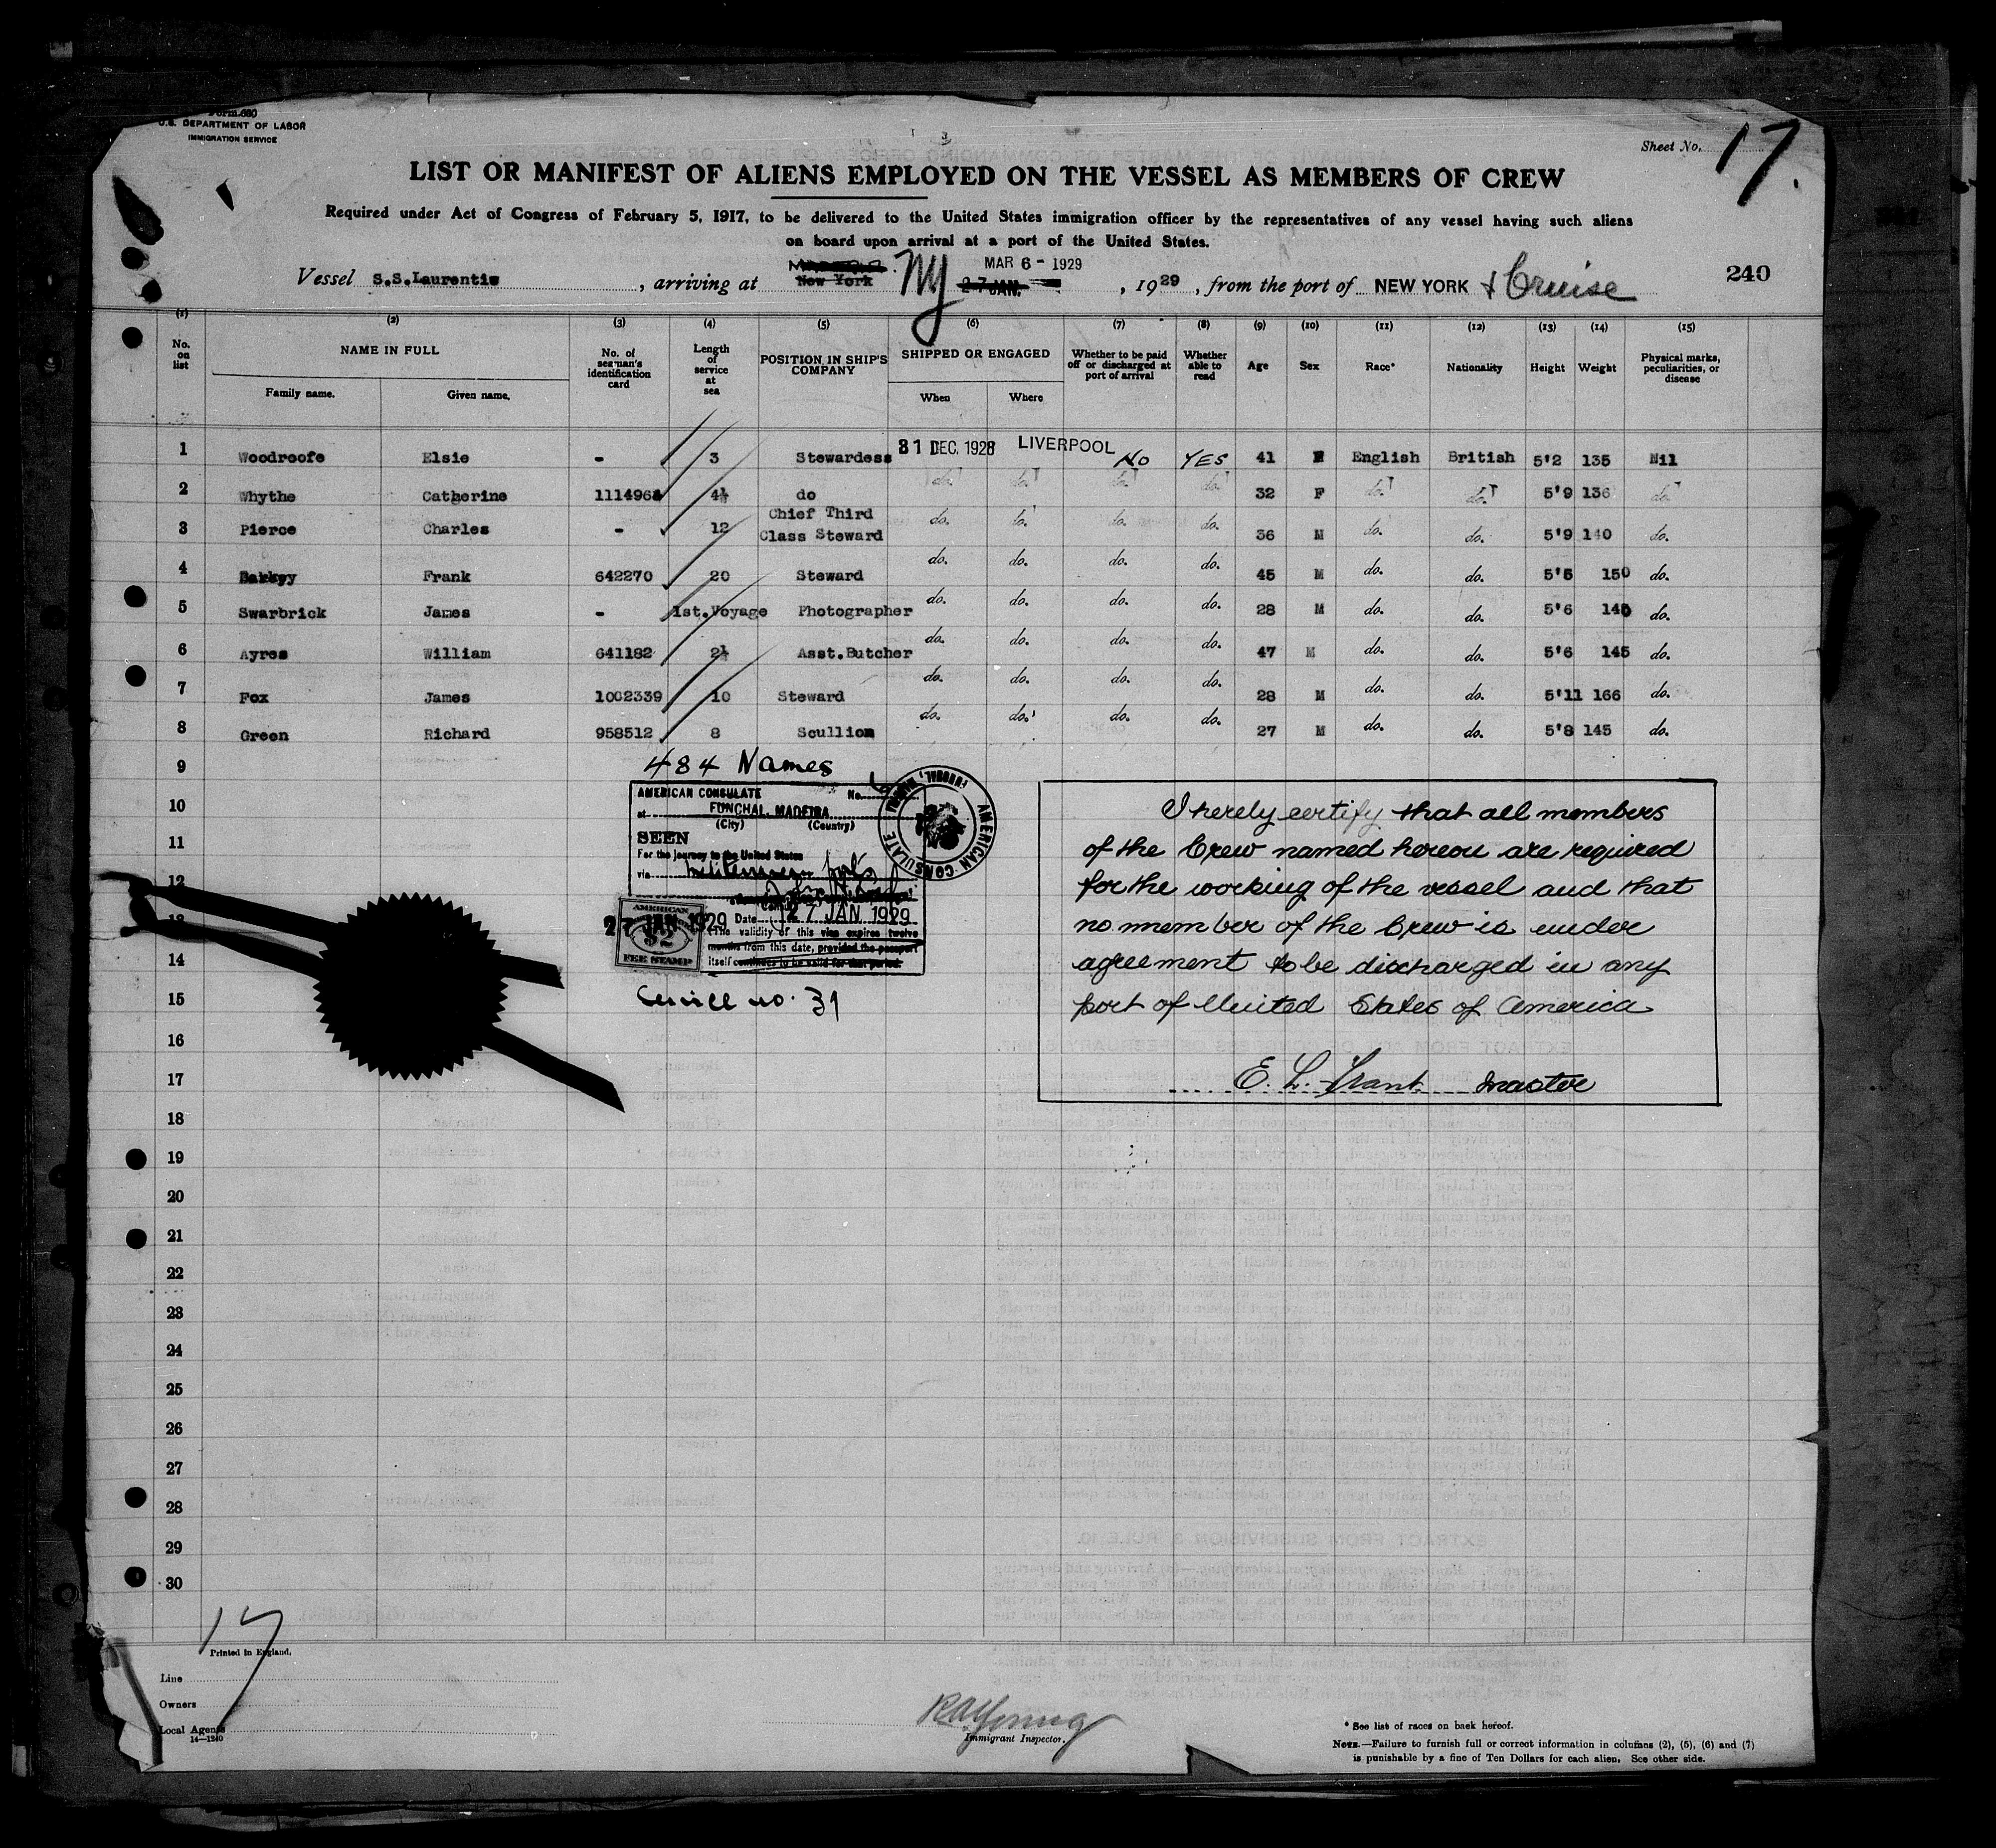 Form 680
U.S. DEPARTMENT OF LABOR
IMMIGRATION SERVICE
Sheet No. 17.
LIST OR MANIFEST OF ALIENS EMPLOYED ON THE VESSEL AS MEMBERS OF CREW
Required under Act of Congress of February 5, 1917, to be delivered to the United States immigration officer by the representatives of any vessel having such aliens
on board upon arrival at a port of the United States.
MAR 6 - 1929
Vessel S.S.Laurentic, arriving at New York NY 27 JAN. , 1929, from the port of NEW YORK & Cruise 240
(1) (2) (3) (4) (5) (6) (7) (8) (9) (10) (11) (12) (13) (14) (15)
No. on list NAME IN FULL Family name. Given name. No. of seaman's identification card Length of service at sea POSITION IN SHIP'S COMPANY SHIPPED OR ENGAGED When Where Whether to be paid off or discharged at port of arrival Whether able to read Age Sex Race* Nationality Height Weight Physical marks, peculiarities, or disease
1 Woodroofe Elsie - 3 Stewardess 31 DEC. 1928 LIVERPOOL No YES 41 F English British 5'2 135 Nil
2 Whythe Catherine 4½ do do. do. do. do. 32 F do. do. 5'9 136 do.
3 Pierce Charles - 12 Chief Third Class Steward do. do. do. do. 36 M do. do. 5'9 140 do.
4 Frank 642270 20 Steward do. do. do. do. 45 M do. do. 5'5 150 do.
5 Swarbrick James - 1st.Voyage Photographer do. do. do. do. 28 M do. do. 5'6 do.
6 Ayres William 641182 2½ Asst.Butcher do. do. do. do. 47 M do. do. 5'6 145 do.
7 Fox James 1002339 10 Steward do. do. do. do. 28 M do. do. 5'11 166 do.
8 Green Richard 958512 8 Scullion do. do. do. do. 27 M do. do. 5'8 145 do.
9
484 Names
10
11
12
13
14
15
16
17
18
19
20
21
22
23
24
25
26
27
28
29
30
AMERICAN CONSULATE No.
at FUNCHAL, MADEIRA
(City) (Country)
SEEN
For the journey to the United States
via
Date 27 JAN 1929
The validity of this visa expires twelve
months from this date, provided the passport
itself continues to be valid for that period.
AMERICAN CONSULATE FUNCHAL, MADEIRA
27 JAN 1929
AMERICAN
$2
FEE STAMP
Service no. 31
I hereby certify that all members
of the Crew named hereon are required
for the working of the vessel and that
no member of the Crew is under
agreement to be discharged in any
port of United States of America
E. L. Trant. Master
17
Printed in England.
Line
Owners
Local Agents
14—1240
RAYoung
Immigrant Inspector.
* See list of races on back hereof.
NOTE.—Failure to furnish full or correct information in columns (2), (5), (6) and (7)
is punishable by a fine of Ten Dollars for each alien. See other side.